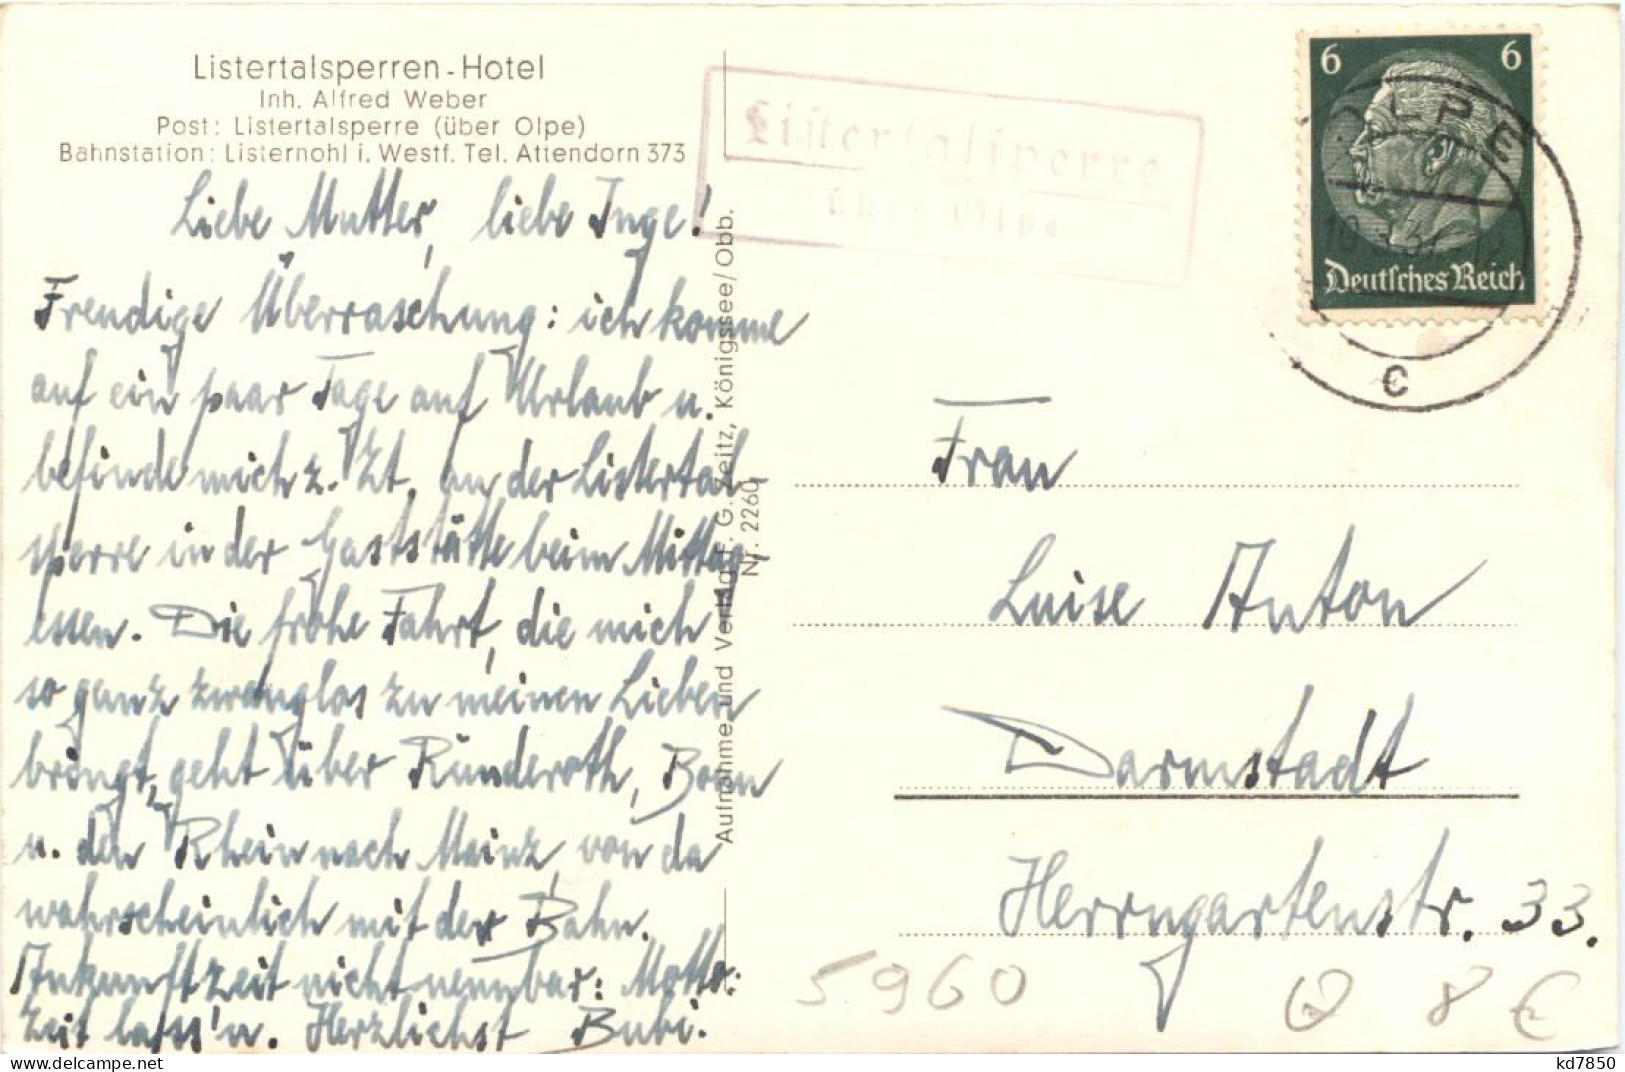 Listertalsperren-Hotel
Inh. Alfred Weber
Post: Listertalsperre (über Olpe)
Bahnstation: Listernohl i. Westf. Tel. Attendorn 373
Liebe Mutter, liebe Inge!
Freudige Überraschung: ich komme
auf ein paar Tage auf Urlaub u.
befinde mich z. Zt. an der Listertal-
sperre in der Gaststätte beim Mittag
essen. Die frohe Fahrt, die mich
so ganz zwanglos zu meinen Lieben
bringt, geht über Ründeroth, Bonn
u. den Rhein nach Mainz, von da
wahrscheinlich mit der Bahn.
Ankunftzeit nicht nennbar: Motto:
Zeit lass'n. Herzlichst Bubi.
Aufnahme und Verlag F. G. Zeitz, Königssee/Obb.
Nr. 2260
Listertalsperre
über Olpe
6 6
Deutsches Reich
OLPE
c
Frau
Luise Anton
Darmstadt
Herrngartenstr. 33.
5960
8 €
kd7850